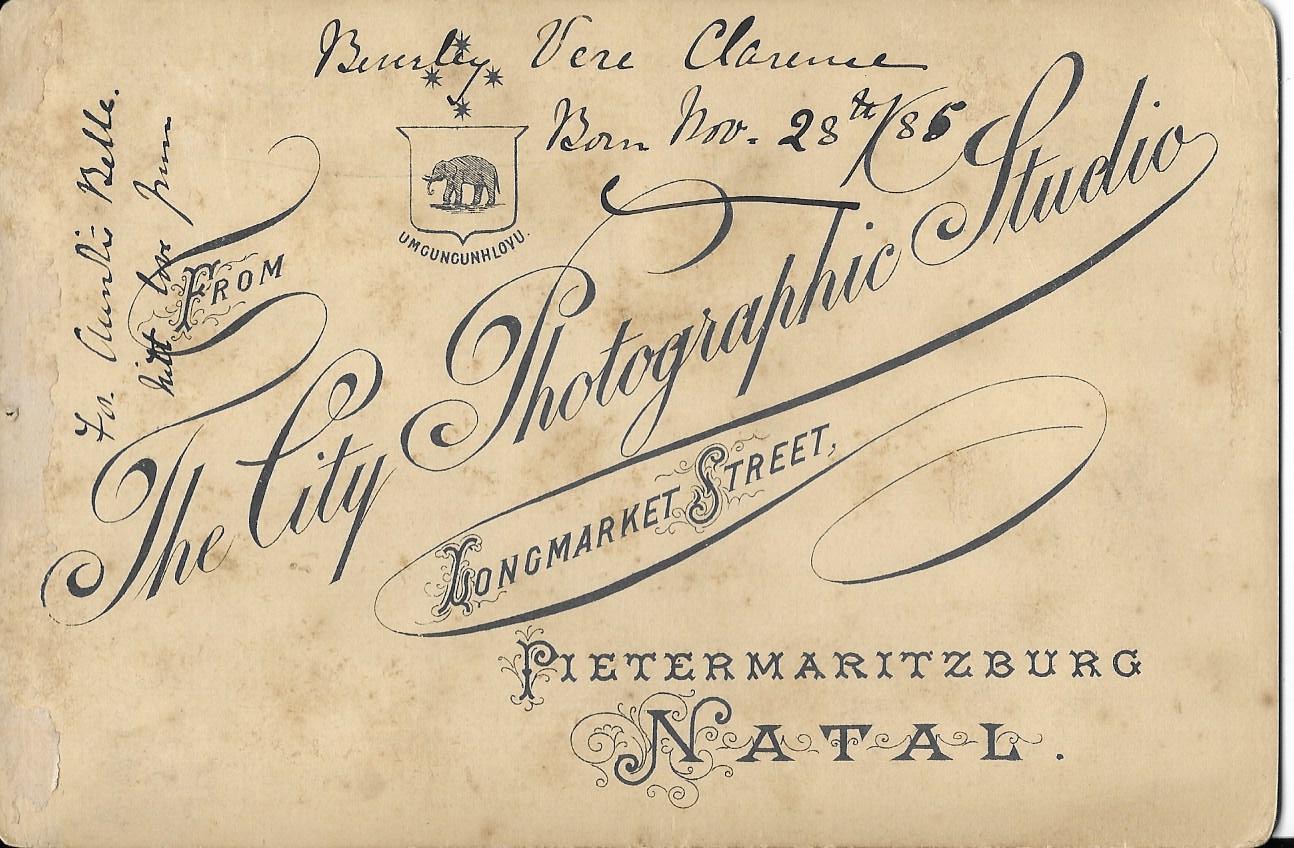 Beverley Vere Clarence
Born Nov. 28th/85
For Auntie Belle.
with love from
UMGUNGUNHLOVU.
FROM
The City Photographic Studio
LONGMARKET STREET,
PIETERMARITZBURG
NATAL.